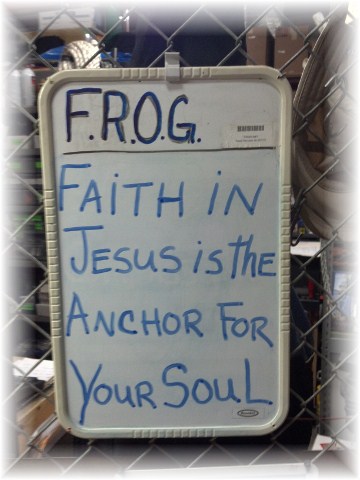 F.R.O.G.
FAITH IN
JESUS is the
ANCHOR FOR
YOUR SOUL